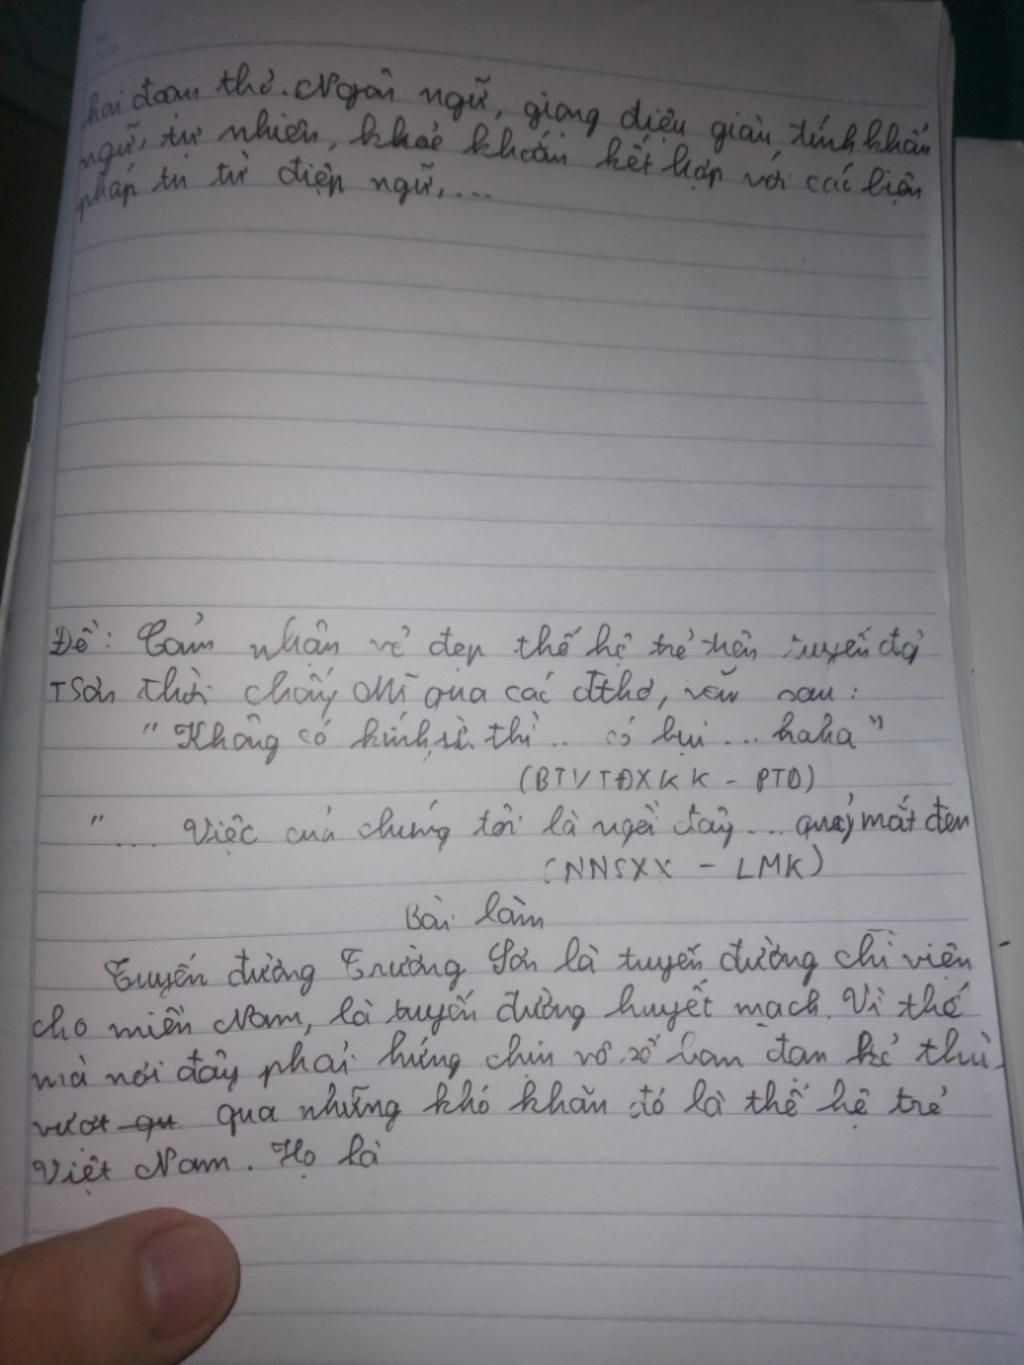 hai đoạn thơ. Ngôn ngữ, giọng điệu giàu tính khẩu
ngữ, tự nhiên, khoẻ khoắn kết hợp với các biện
pháp tu từ điệp ngữ,...
Đề: Cảm nhận vẻ đẹp thế hệ trẻ trên tuyến đg
TSơn thời chống Mĩ qua các đthơ, văn sau:
"Không có kính, ừ thì.. có bụi ... haha"
(BTVTĐXKK - PTD)
"... Việc của chúng tôi là ngồi đây ... quáy mắt đen
(NNSXX - LMK)
Bài làm
Tuyến đường Trường Sơn là tuyến đường chi viện
cho miền Nam, là tuyến đường huyết mạch. Vì thế
mà nơi đây phải hứng chịu vô số bom đạn kẻ thù.
vượt qu qua những khó khăn đó là thế hệ trẻ
Việt Nam. Họ là